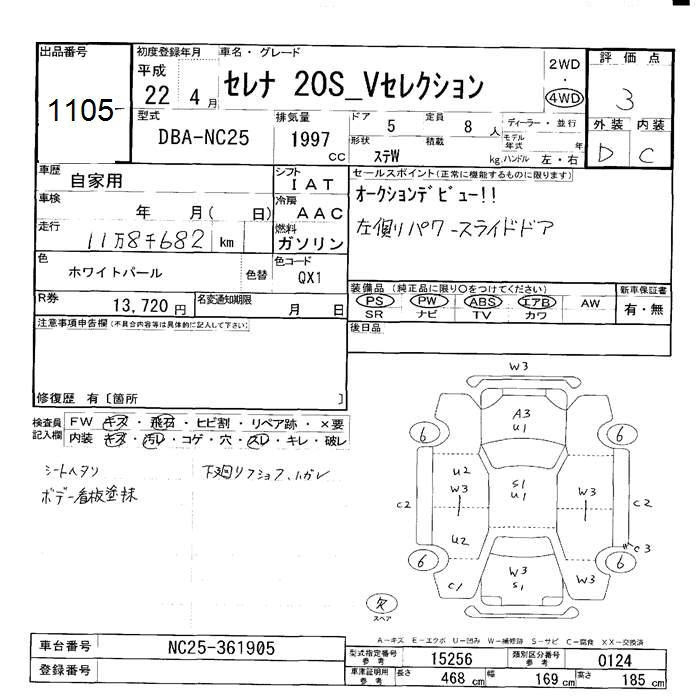 出品番号
1105
初度登録年月
平成
22 4月
車名・グレード
セレナ 20S_Vセレクション
2WD
・
4WD
評価点
3
外装 内装
D C
型式
DBA-NC25
排気量
1997
cc
ドア 5 定員 8人
形状 ステW 積載 kg
ディーラー・並行
モデル年式 年
ハンドル 左・右
車歴 自家用
シフト IAT
車検 年 月( 日)
冷房 AAC
走行 11万8千682 km
燃料 ガソリン
色 ホワイトパール 色替
色コード QX1
R券 13,720円
名変通知期限 月 日
セールスポイント(正常に機能するものに限ります)
オークションデビュー!!
左側リパワースライドドア
装備品(純正品に限り○をつけてください)
PS PW ABS エアB AW
SR ナビ TV カワ
新車保証書
有・無
後日品
注意事項申告欄(不具合内容等は具体的に記入して下さい)
修復歴 有〔箇所 〕
検査員記入欄
FW キズ・飛石・ヒビ割・リペア跡・×要
内装 キズ・汚レ・コゲ・穴・スレ・キレ・破レ
シートヘタリ
ボデー看板塗抹
W3
A3
U1
6
6
U2
W3
U2
S1
U1
W3
C2
C2
C3
6
6
C1
W3
S1
W3
欠
スペア
A-キズ E-エクボ U-凹み W-補修跡 S-サビ C-腐食 XX-交換済
車台番号 NC25-361905
登録番号
型式指定番号 参考 15256
類別区分番号 参考 0124
車庫証明用 参考 長さ 468 cm 幅 169 cm 高さ 185 cm